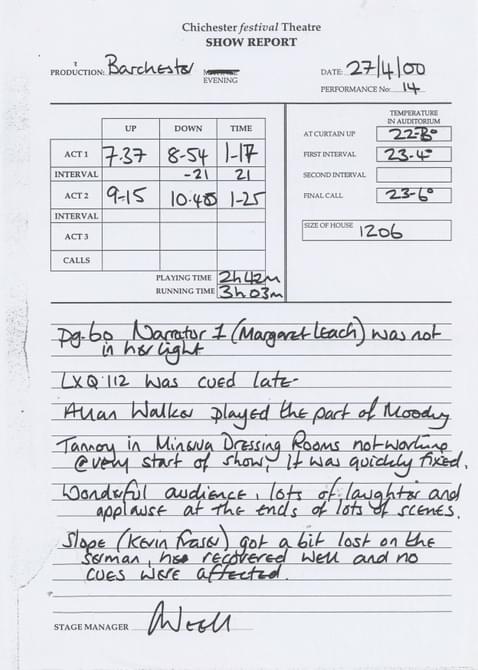 Chichester festival Theatre
SHOW REPORT
PRODUCTION: Barchester
EVENING
DATE: 27/4/00
PERFORMANCE No: 14
UP DOWN TIME
ACT 1 7.37 8-54 1-17
INTERVAL -21 21
ACT 2 9-15 10.40 1-25
INTERVAL
ACT 3
CALLS
PLAYING TIME 2h42m
RUNNING TIME 3h03m
TEMPERATURE
IN AUDITORIUM
AT CURTAIN UP 22-8°
FIRST INTERVAL 23-4°
SECOND INTERVAL
FINAL CALL 23-6°
SIZE OF HOUSE 1206
Pg.60 Narrator 1 (Margaret Leach) was not
in her light
LXQ112 was cued late-
Allan Walker played the part of Moody
Tannoy in Minerva Dressing Rooms not working
@ very start of show, It was quickly fixed.
Wonderful audience, lots of laughter and
applause at the ends of lots of scenes.
Slope (Kevin Fraser) got a bit lost on the
serman, he recovered well and no
cues were affected.
STAGE MANAGER